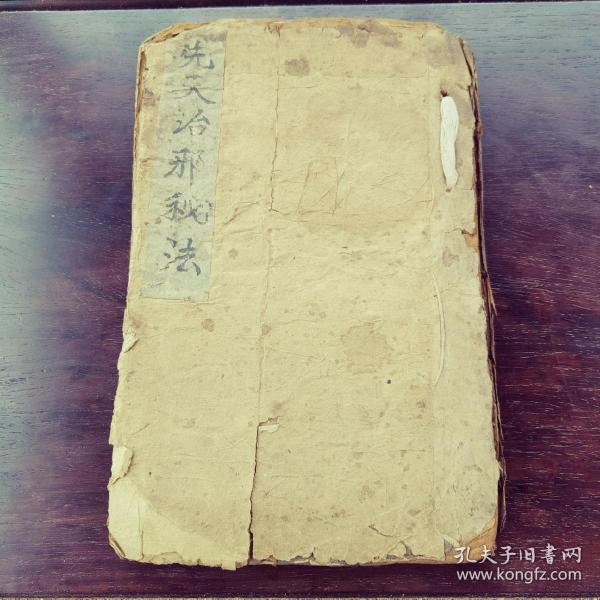 先天治邪秘法
孔夫子旧書网
www.kongfz.com